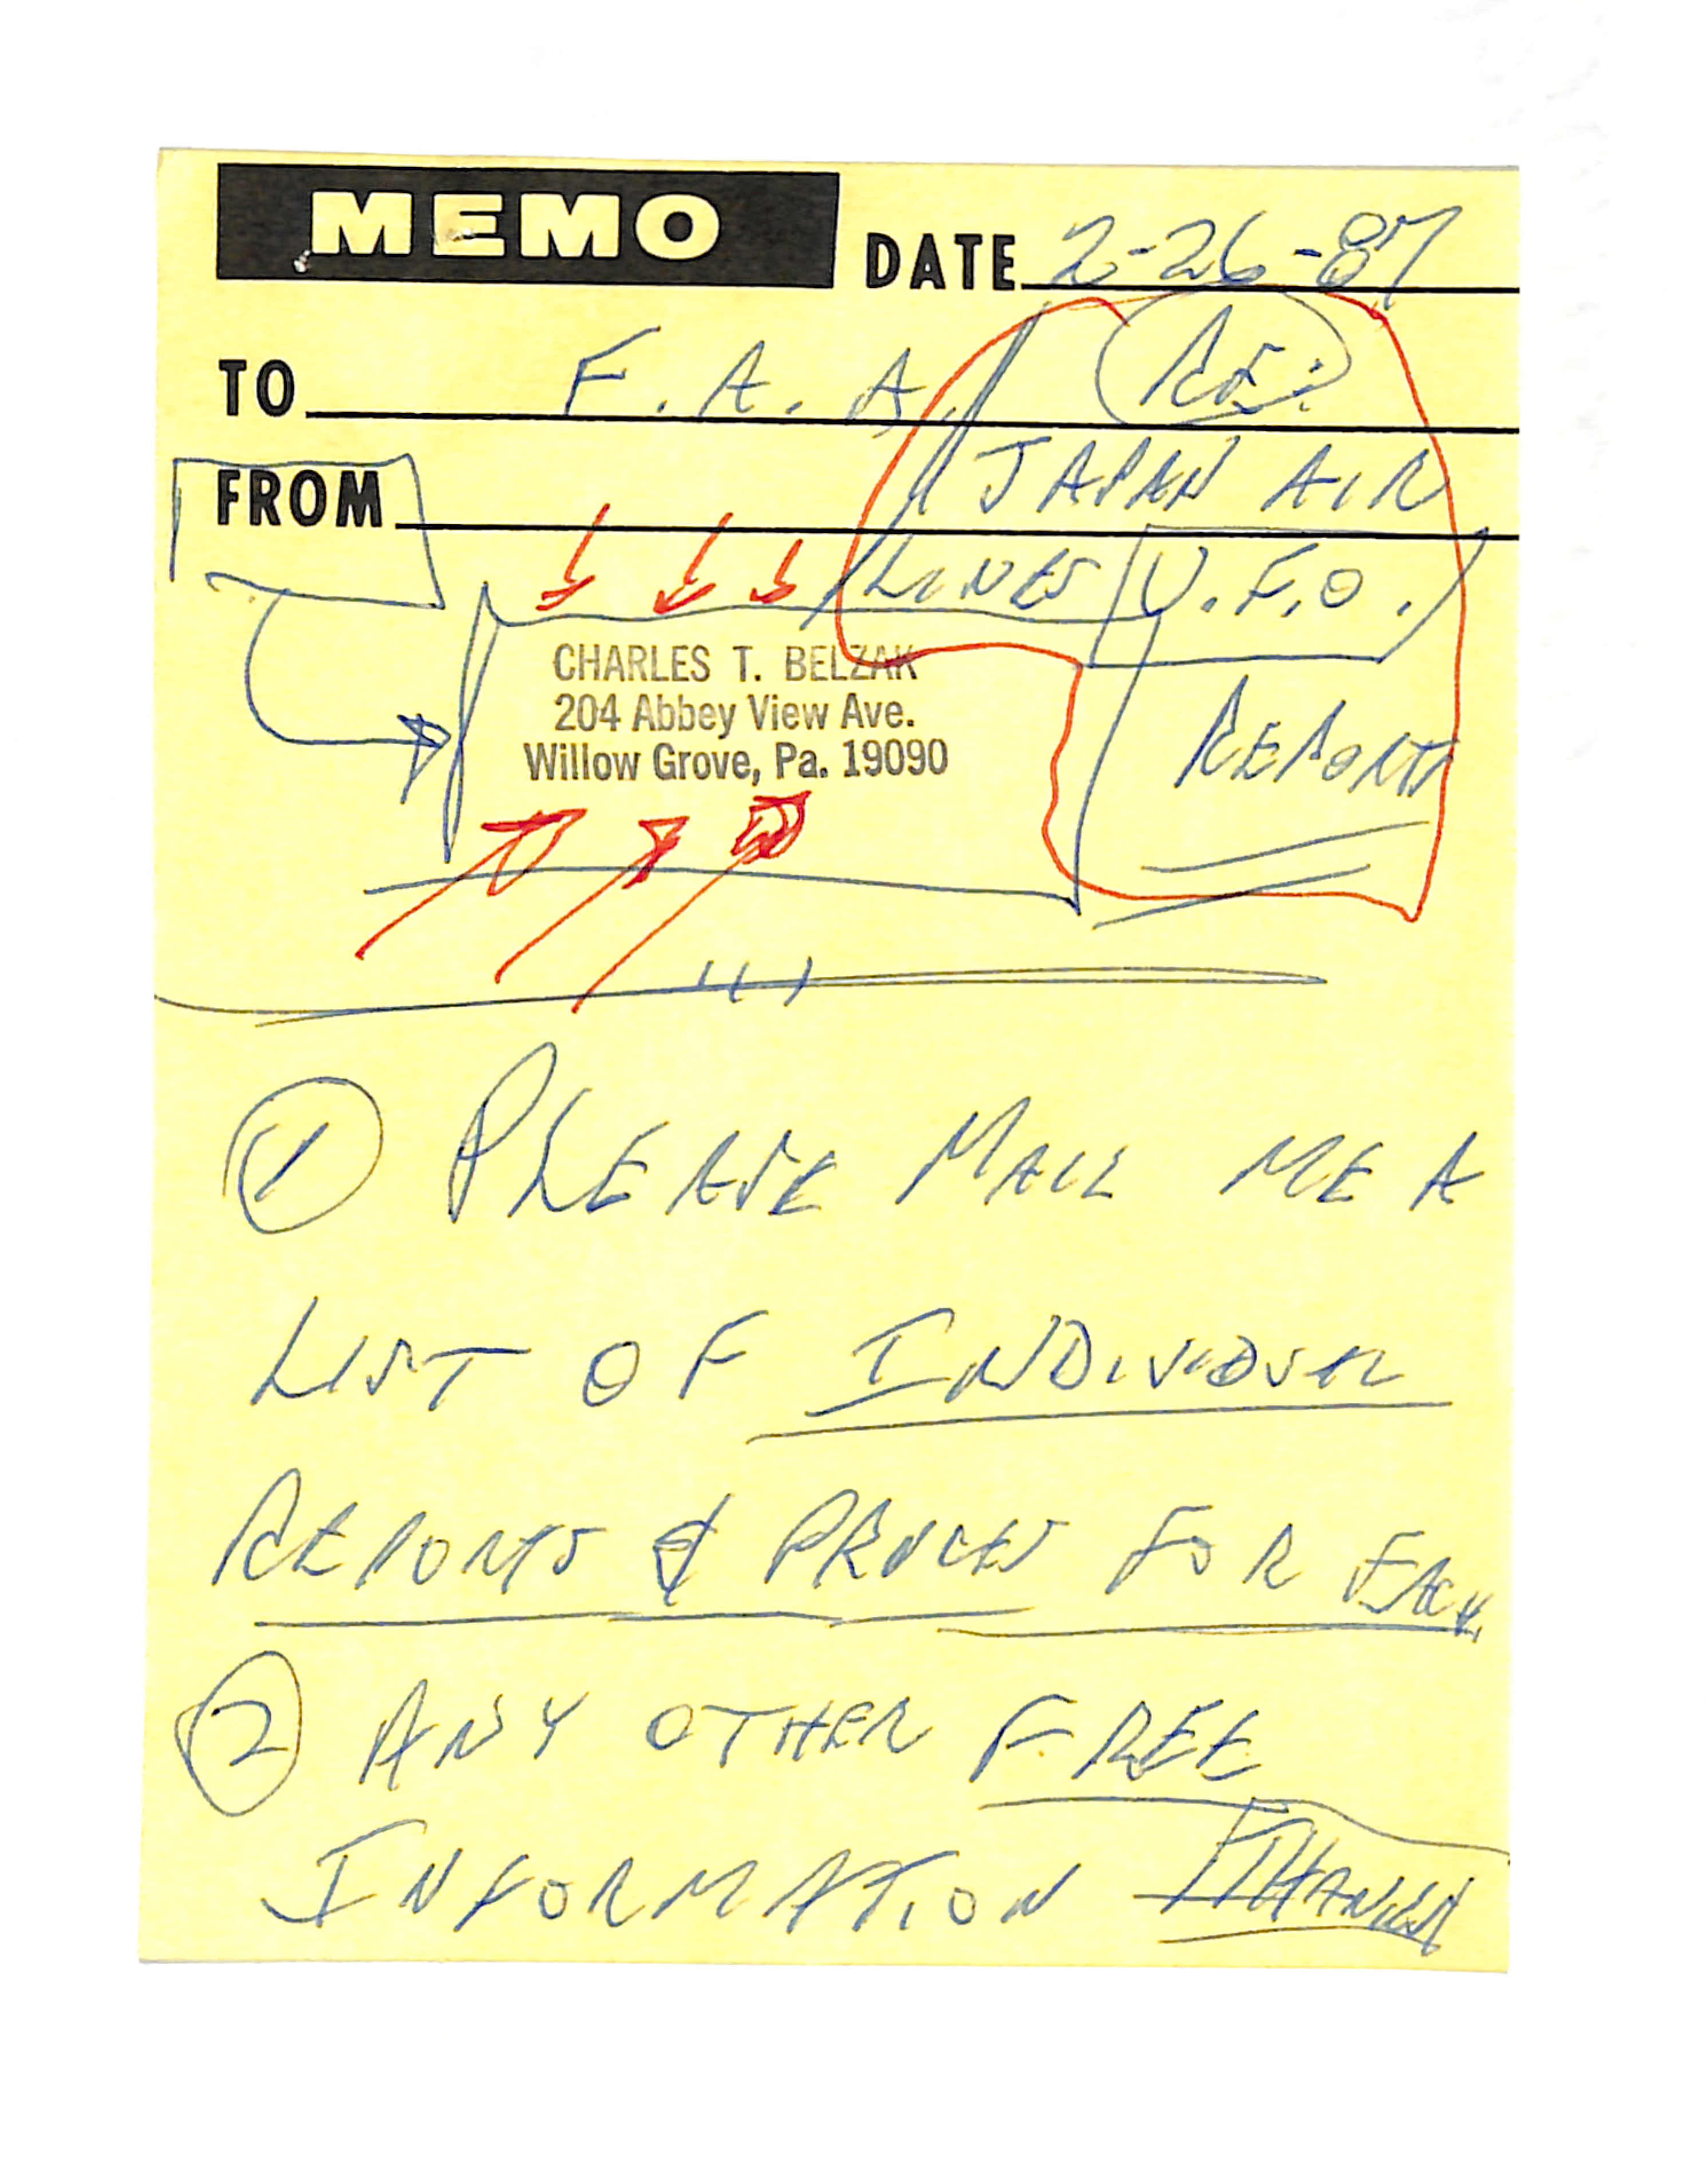 MEMO DATE 2-26-87
TO F.A.A. RE:
JAPAN AIR
FROM
LINES U.F.O.
CHARLES T. BELZAK
204 Abbey View Ave.
Willow Grove, Pa. 19090
REPORTS
1 PLEASE MAIL ME A
LIST OF INDIVIDUAL
REPORTS & PRICES FOR EACH
2 ANY OTHER FREE
INFORMATION THANKS